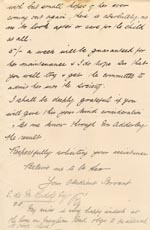 with but small hopes of her ever
coming out again. There is absolutely no
one to look after or care for the child
at all.
5/- a week will be guaranteed for
her maintenance & I do hope Sir that
you will try & get the Committee to
admit her into the Society.
I shall be deeply grateful if you
will give this your kind consideration
& let me know through Mr Adderley
the result
Respectfully soliciting your assistance
Believe me to be Sir
Your Obedient Servant
My niece is very happy indeed at
the Home in